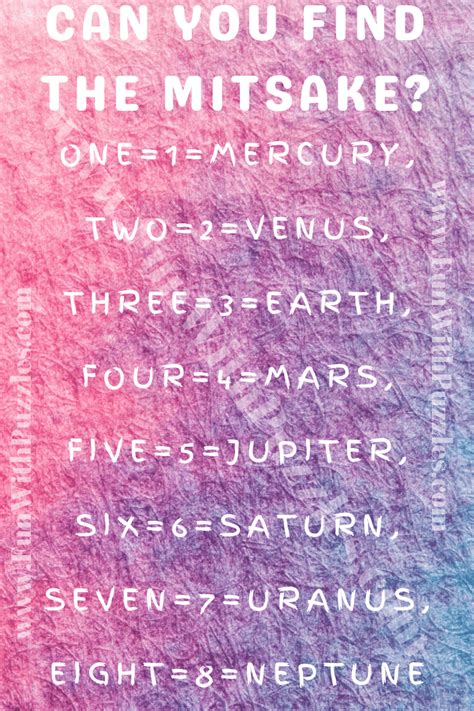 CAN YOU FIND
THE MITSAKE?
ONE=1=MERCURY,
TWO=2=VENUS,
THREE=3=EARTH,
FOUR=4=MARS,
FIVE=5=JUPITER,
SIX=6=SATURN,
SEVEN=7=URANUS,
EIGHT=8=NEPTUNE
www.FunWithPuzzles.com
www.FunWithPuzzles.com